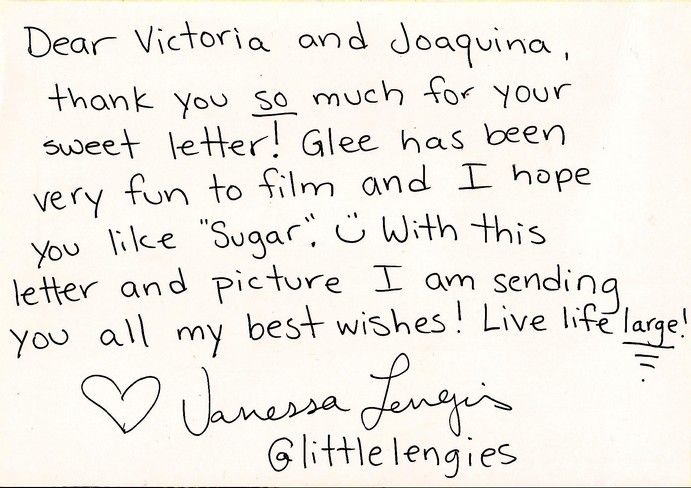 Dear Victoria and Joaquina,
thank you so much for your
sweet letter! Glee has been
very fun to film and I hope
you like "Sugar". Ü With this
letter and picture I am sending
you all my best wishes! Live life large!
♡ Vanessa Lengies
@littlelengies